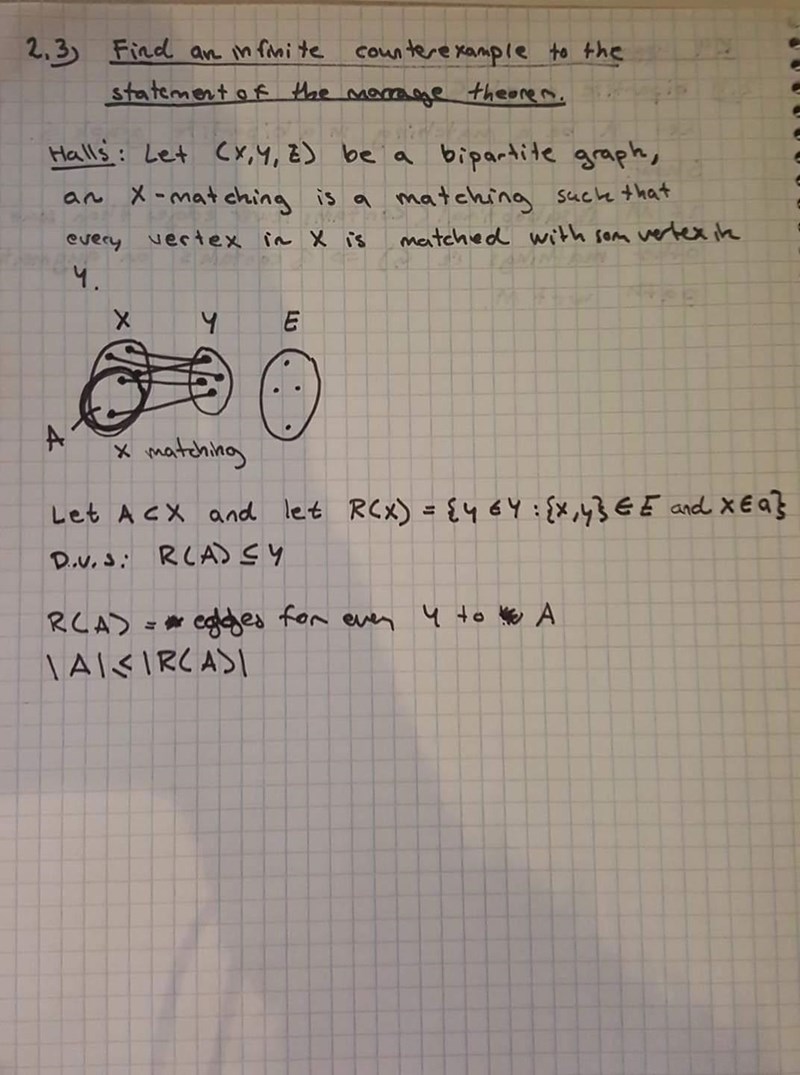 2.3) Find an infinite counterexample to the
statement of the marrage theorem.
Hall's: Let (X,Y,E) be a bipartite graph,
an X-matching is a matching such that
every vertex in X is matched with som vertex in
Y.
X Y E
A
X matching
Let A ⊂ X and let R(X) = {y ∈ Y : {x,y} ∈ E and x ∈ a}
D.v.s: R(A) ⊆ Y
R(A) = edges for every Y to A
|A| ≤ |R(A)|